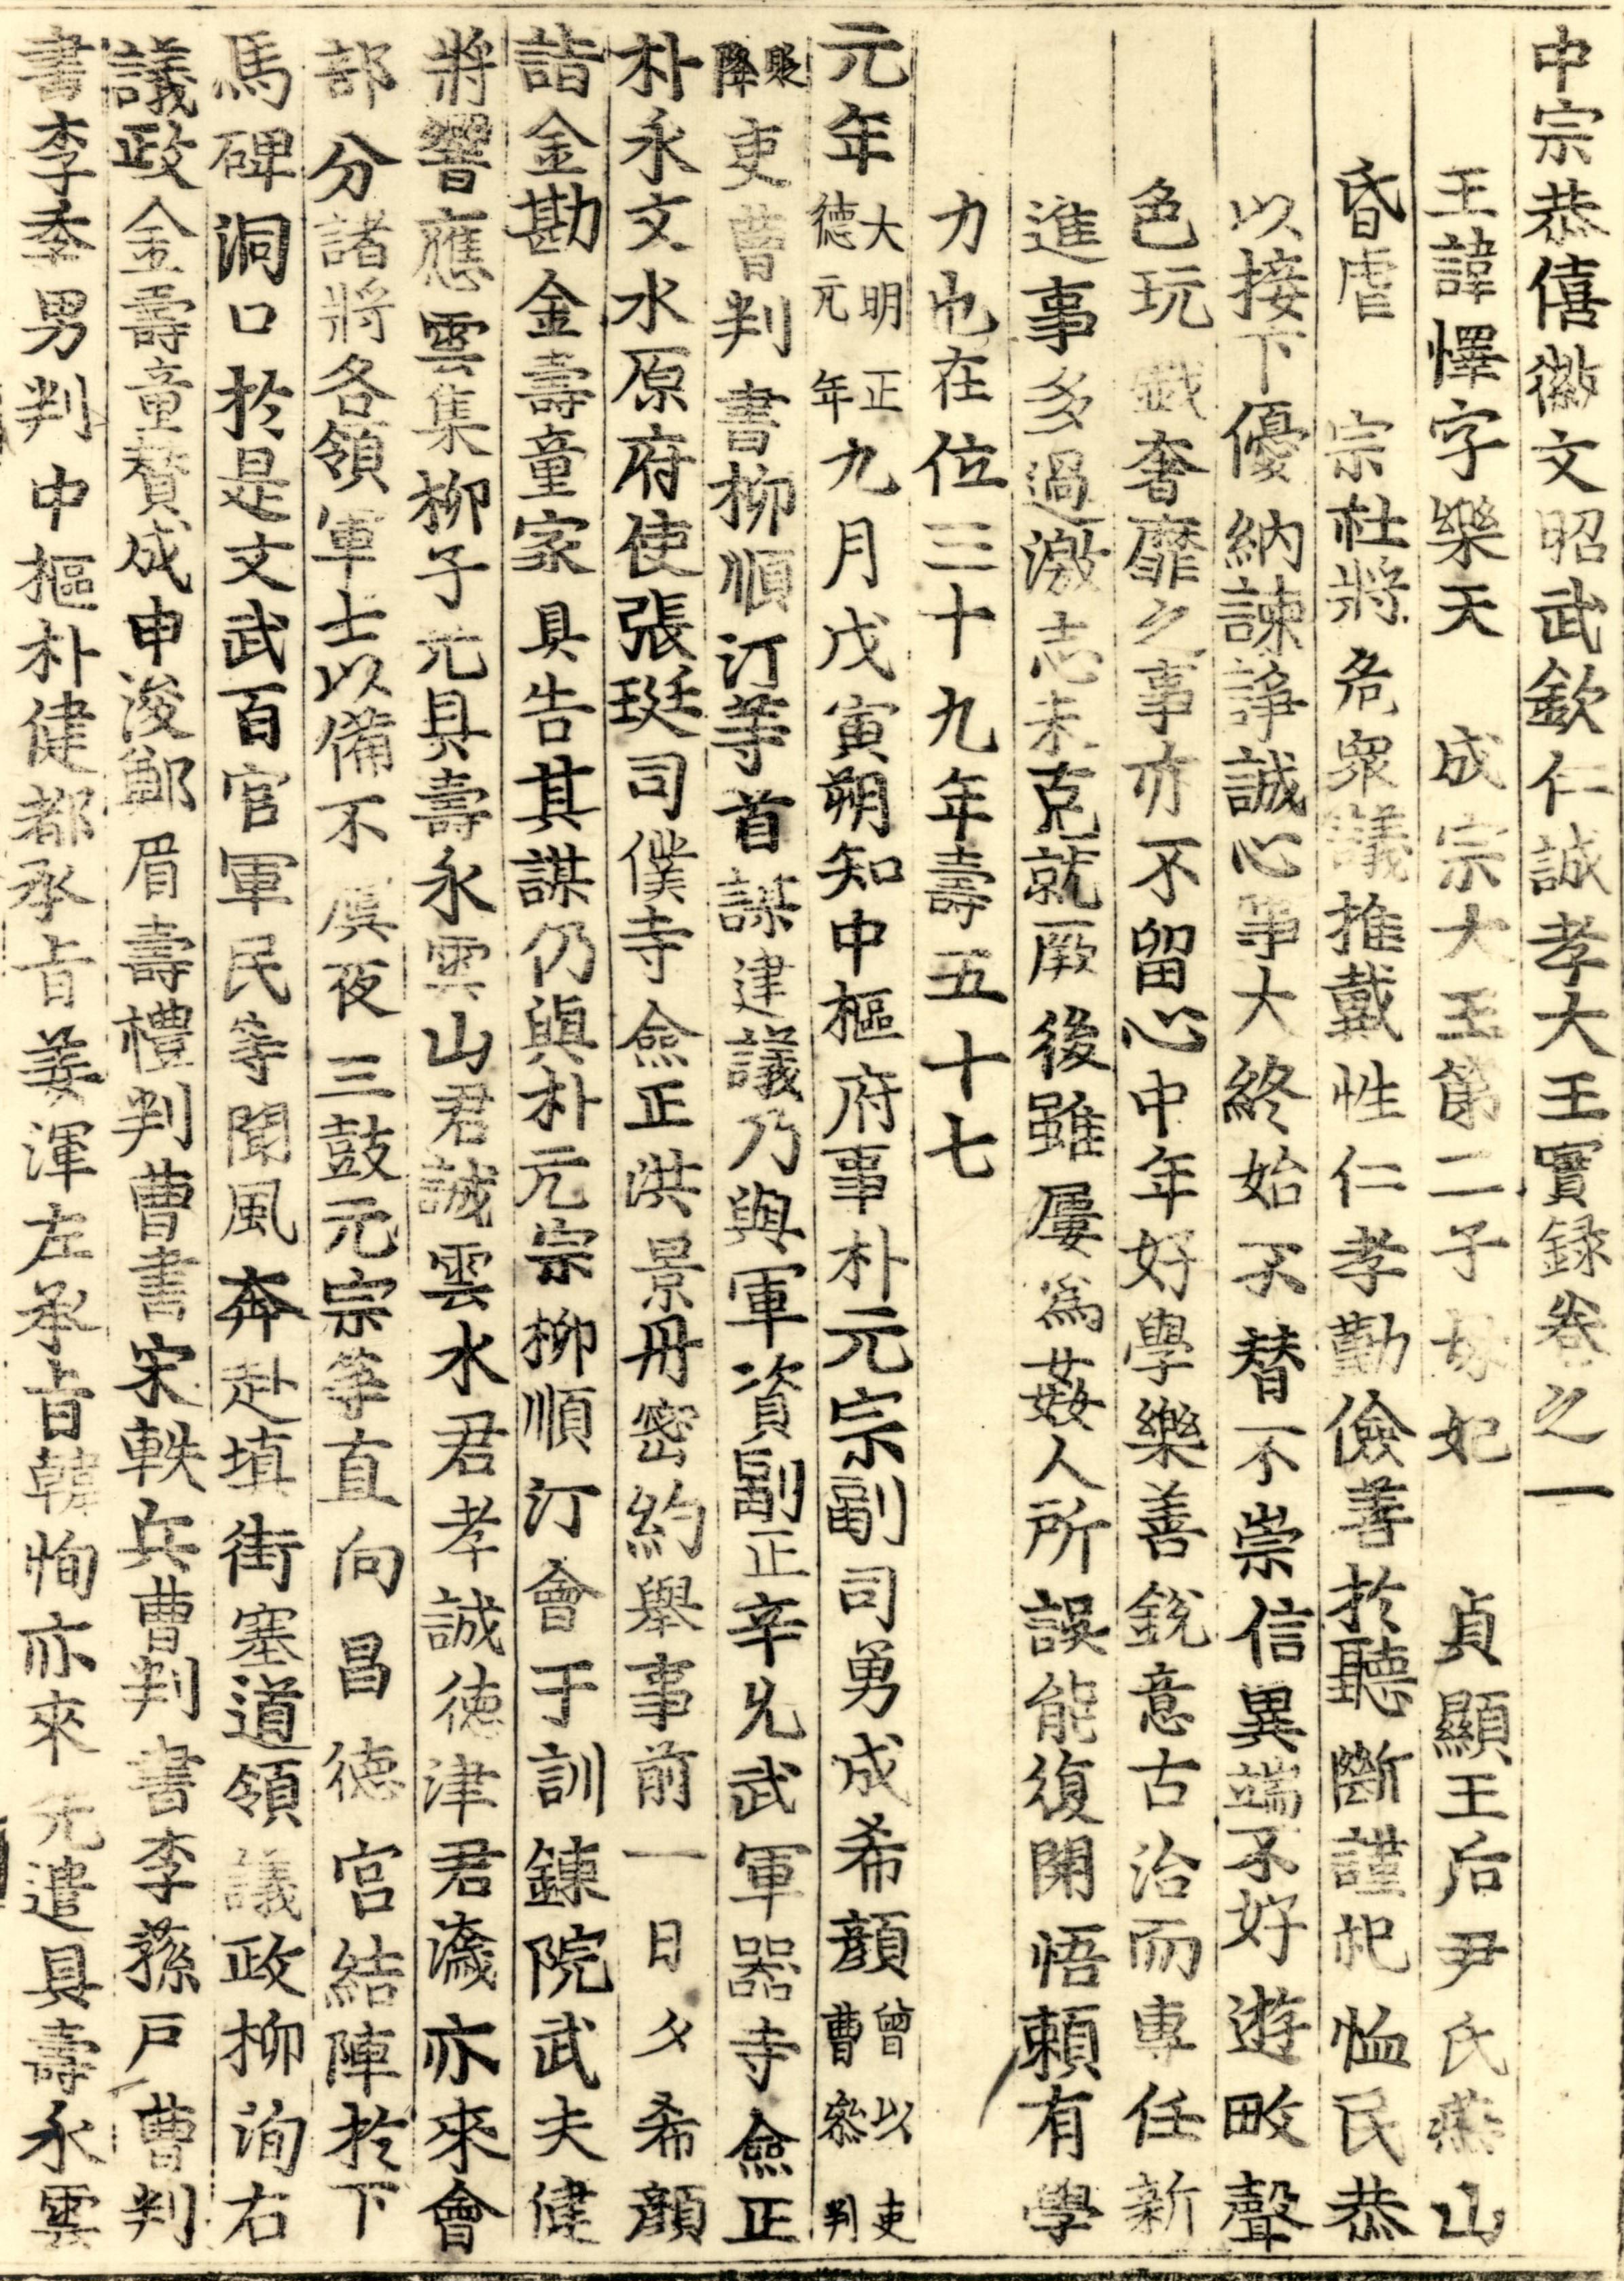 中宗恭僖徽文昭武欽仁誠孝大王實録卷之一
王諱懌字樂天 成宗大王第二子母妃 貞顯王后尹氏燕山
昏虐 宗社將危衆議推戴性仁孝勤儉善於聽斷謹祀恤民恭
以接下優納諫諍誠心事大終始不替不崇信異端不好遊畋聲
色玩戲奢靡之事亦不留心中年好學樂善銳意古治而專任新
進事多過激志未克就厥後雖屢爲姦人所誤能復開悟賴有學
力也在位三十九年壽五十七
元年大明正德元年九月戊寅朔知中樞府事朴元宗副司勇成希顔曾以吏曹叅判
貶降吏曹判書柳順汀等首謀建議乃與軍資副正辛允武軍器寺僉正
朴永文水原府使張珽司僕寺僉正洪景舟密約舉事前一日夕希顔
詣金勘金壽童家具告其謀仍與朴元宗柳順汀會于訓鍊院武夫健
將響應雲集柳子光具壽永雲山君誡雲水君孝誠德津君濊亦來會
部分諸將各領軍士以備不虞夜三鼓元宗等直向昌德宮結陣於下
馬碑洞口於是文武百官軍民等聞風奔赴填街塞道領議政柳洵右
議政金壽童贊成申浚鄭眉壽禮判曹書宋軼兵曹判書李蓀戸曹判
書李季男判中樞朴健都承旨姜渾左承旨韓恂亦來元遣具壽永雲